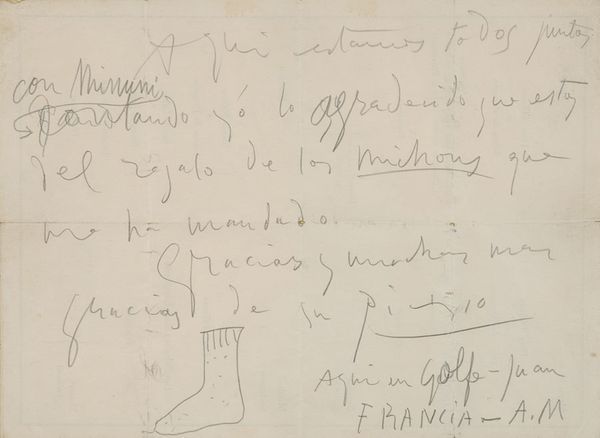 Aqui estamos todos juntos
con Mimmi
yó lo agradecido que estoy
del regalo de los michons que
me ha mandado.
Gracias y muchas mas
gracias de su Picasso
Aqui en Golfe-Juan
FRANCIA - A.M